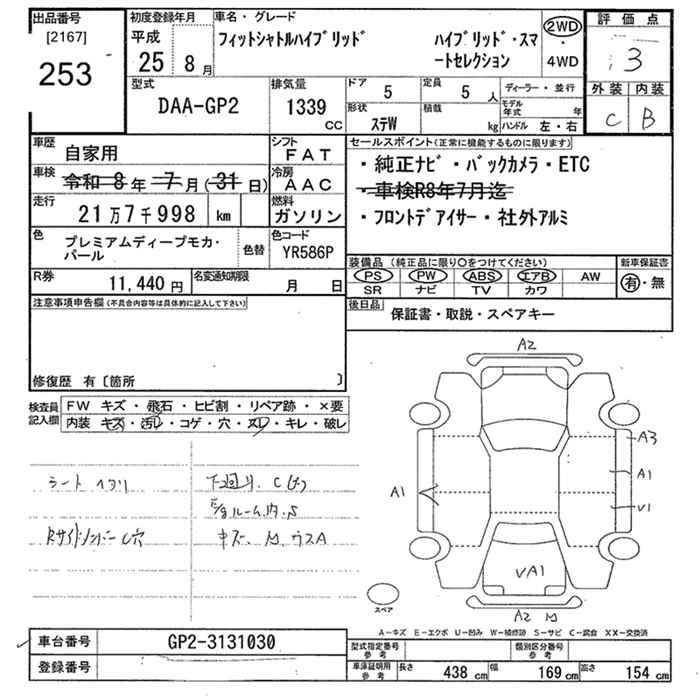 出品番号 初度登録年月 車名・グレード 評価点
[2167] 平成 フィットシャトルハイブリッド ハイブリッド・スマ 2WD
253 25 8月 ートセレクション ・ 3
4WD
型式 排気量 ドア 定員 ディーラー・並行 外装 内装
DAA-GP2 1339 CC 5 5人 モデル年式 年 C B
形状 積載
ステW kg ハンドル 左・右
車歴 自家用 シフト FAT セールスポイント(正常に機能するものに限ります)
車検 令和 8年 7月(31日) 冷房 AAC ・純正ナビ・バックカメラ・ETC
走行 21万7千998 km 燃料 ガソリン ・車検R8年7月迄
・フロントデアイサー・社外アルミ
色 プレミアムディープモカ・パール 色替 色コード YR586P
装備品(純正品に限り○をつけてください) 新車保証書
R券 11,440円 名変通知期限 月 日 PS PW ABS エアB AW 有・無
SR ナビ TV カワ
注意事項申告欄(不具合内容等は具体的に記入して下さい) 後日品 保証書・取説・スペアキー
修復歴 有〔箇所 〕
検査員記入欄 FW キズ・飛石・ヒビ割・リペア跡・×要
内装 キズ・汚レ・コゲ・穴・スレ・キレ・破レ
シートヘタリ 下廻り、C(大)
ルーム内、S
キズ、M、ウスA
A2
A3
A1
A1
V1
VA1
スペア A2 M
A-キズ E-エクボ U-凹み W-補修跡 S-サビ C-腐食 XX-交換済
車台番号 GP2-3131030 型式指定番号参考 類別区分番号参考
登録番号 車庫証明用参考 長さ 438cm 幅 169cm 高さ 154cm